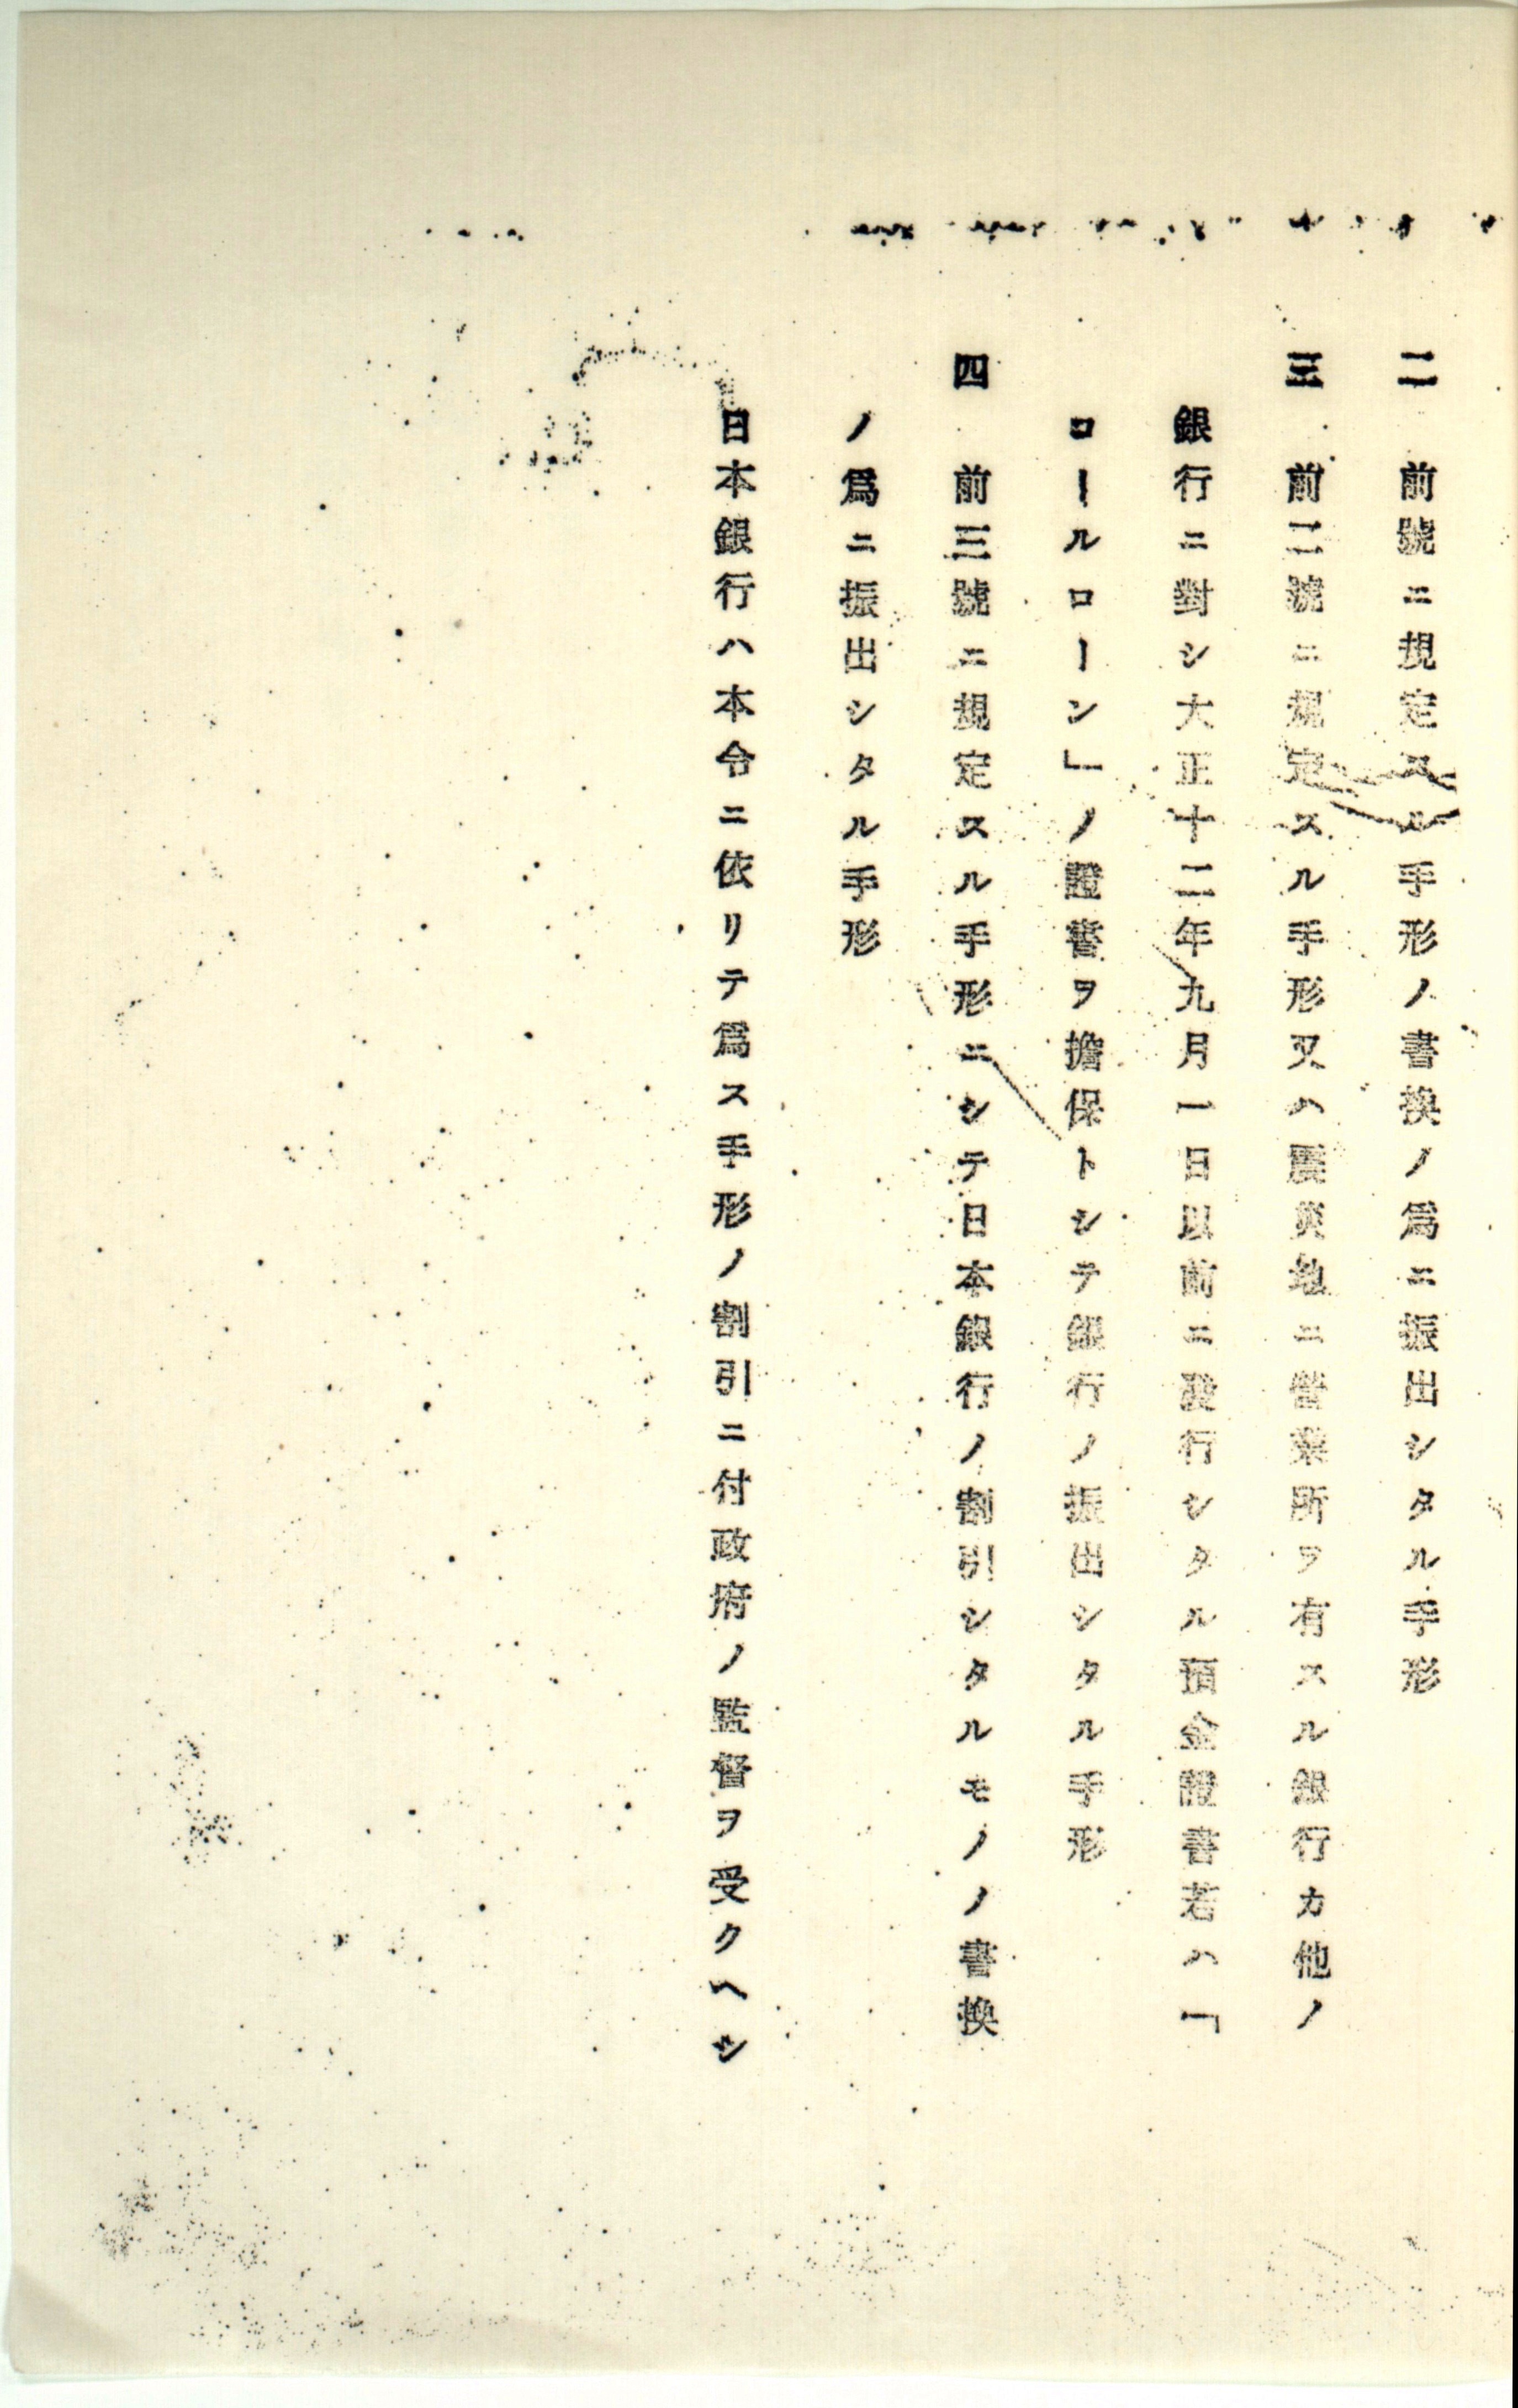 二　前號ニ規定スル手形ノ書換ノ爲ニ振出シタル手形
三　前二號ニ規定スル手形又ハ震災地ニ營業所ヲ有スル銀行カ他ノ
銀行ニ對シ大正十二年九月一日以前ニ發行シタル預金證書若ハ「
コールローン」ノ證書ヲ擔保トシテ銀行ノ振出シタル手形
四　前三號ニ規定スル手形ニシテ日本銀行ノ割引シタルモノノ書換
ノ爲ニ振出シタル手形
日本銀行ハ本令ニ依リテ爲ス手形ノ割引ニ付政府ノ監督ヲ受クヘシ